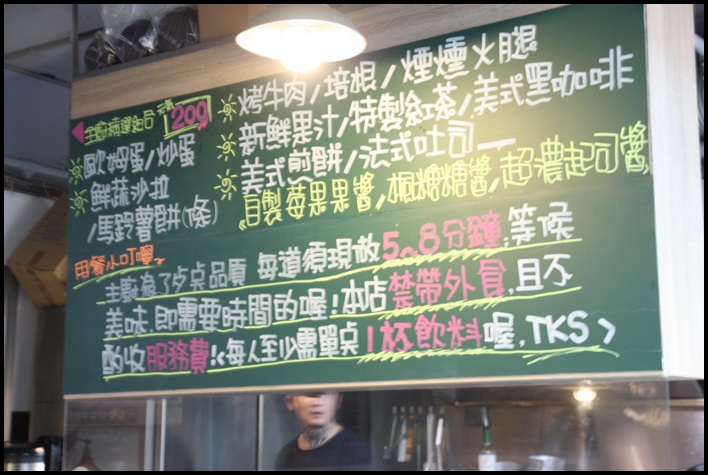 主廚精選組合 元氣 209
歐姆蛋/炒蛋
鮮蔬沙拉
/馬鈴薯餅(條)
烤牛肉/培根/煙燻火腿
新鮮果汁/特製紅茶/美式黑咖啡
美式煎餅/法式吐司
自製莓果果醬/楓糖糖醬/超濃起司醬
用餐小叮嚀~
主廚為了步桌品質 每道須現做5~8分鐘;等候
美味.即需要時間的喔!本店禁帶外食,且不
酌收服務費!<每人至少需單点1杯飲料喔,TKS>